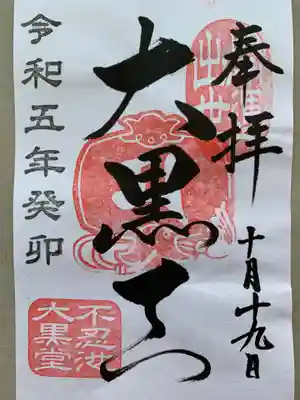 奉拝
十月十九日
大黒天
令和五年癸卯
不忍池
大黒堂